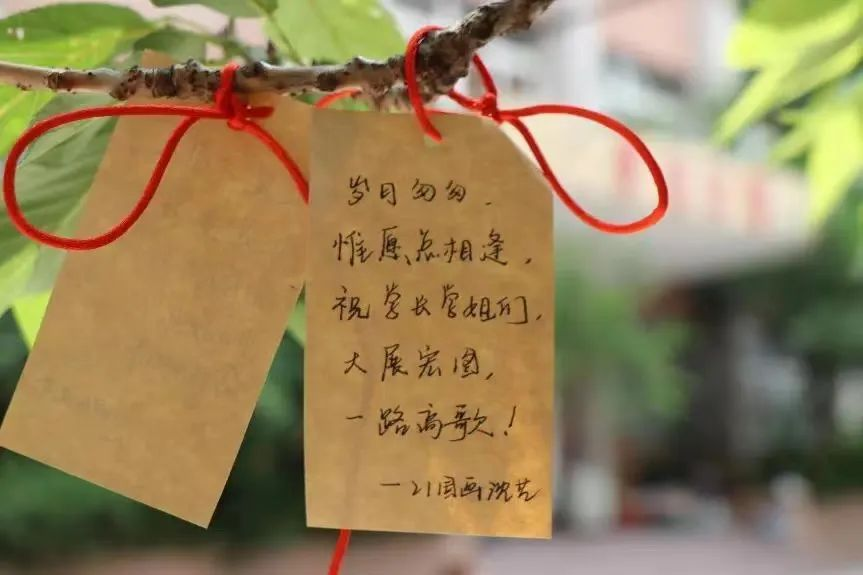 岁月匆匆，
惟愿总相逢，
祝学长学姐们，
大展宏图，
一路高歌！
—21国画沈艺